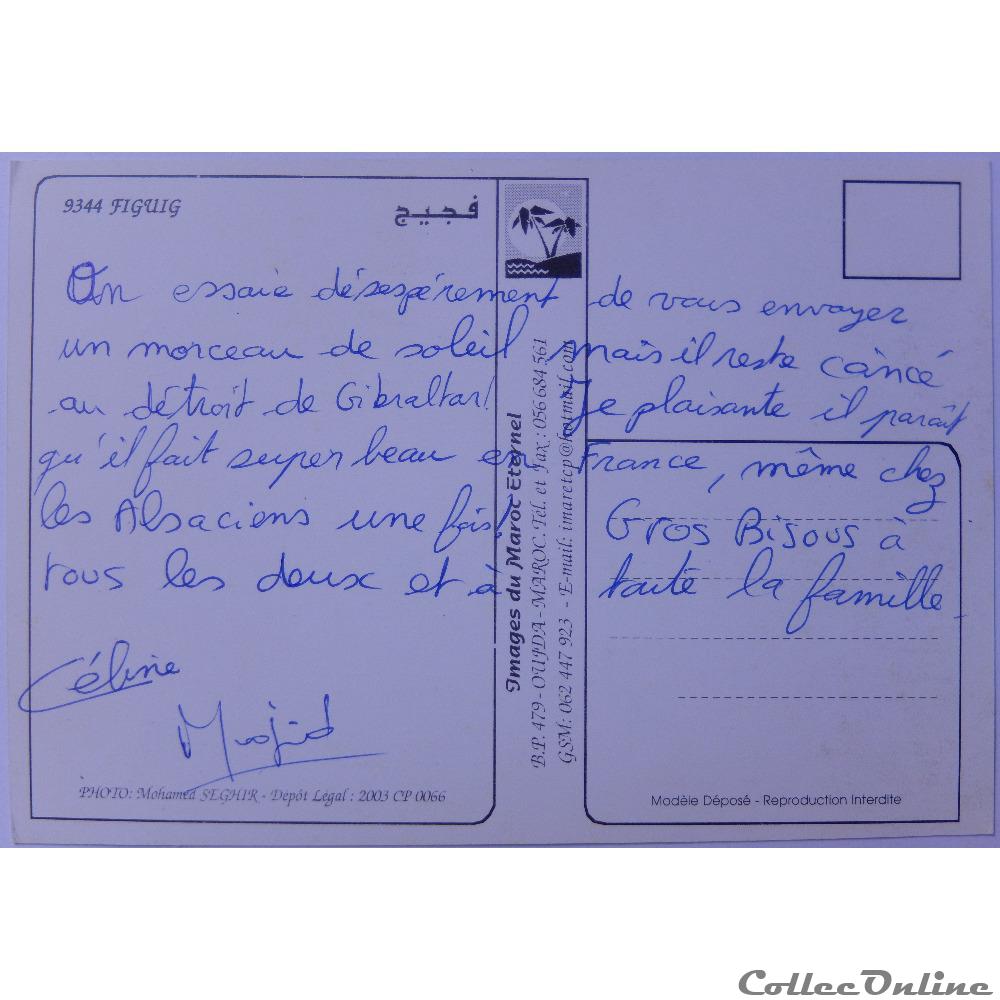 9344 FIGUIG
فجيج
On essaie désespérement de vous envoyer
un morceau de soleil mais il reste coincé
au détroit de Gibraltar! Je plaisante il paraît
qu'il fait super beau en France, même chez
les Alsaciens une fois! Gros Bisous à
tous les deux et à toute la famille.
Céline
Majid
PHOTO: Mohamed SEGHIR - Dépôt Légal : 2003 CP 0066
Images du Maroc Eternel
B.P. 479 - OUJDA - MAROC. Tél. et Fax : 056 684 561
GSM: 062 447 923 - E-mail: imaretcp@hotmail.com
Modèle Déposé - Reproduction Interdite
CollecOnline